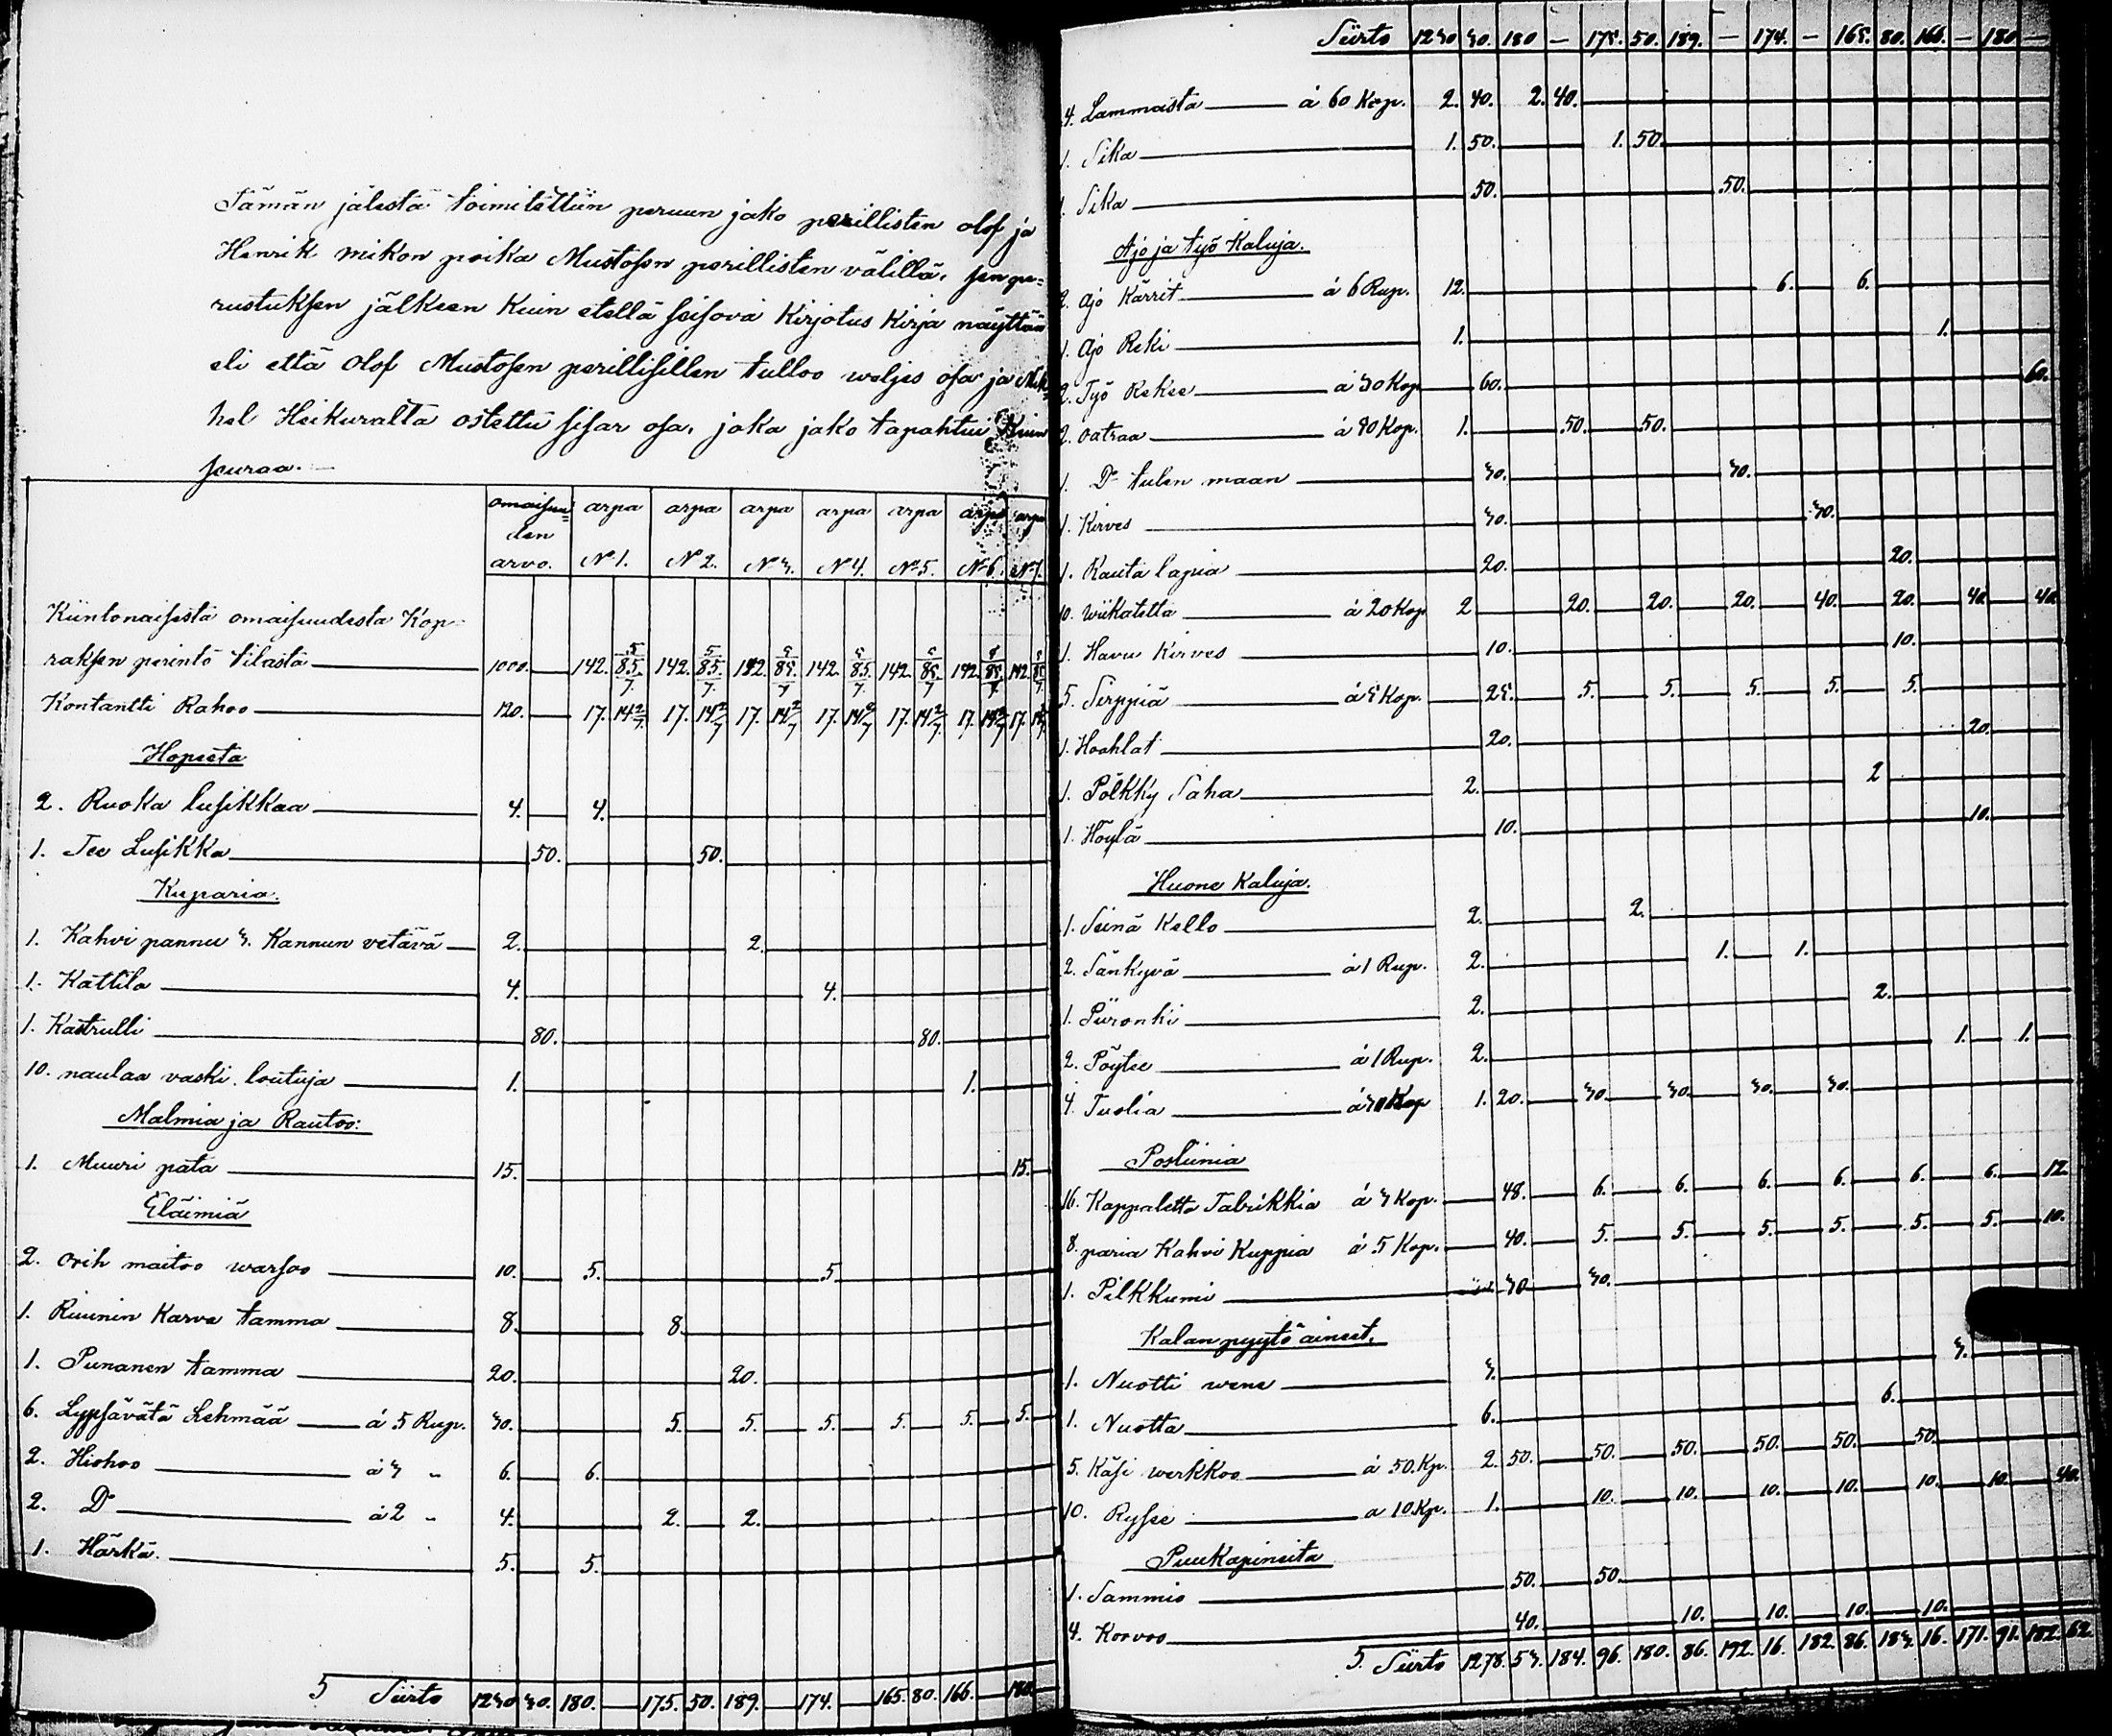 Tämän jälestä toimitettiin peruun jako perillisten olof ja
Henrik mikon poika Mustosen perillisten välillä, sen pe=
rustuksen jälkeen kuin etellä seisova Kirjotus Kirja näyttää
eli että olof Mustosen perillisillen tulloo weljes osa ja Mik
hel Heikuralta ostettu sisar osa, joka jako tapahtui kuin
seuraa. —
omaisuu= arpa arpa arpa arpa arpa arpa arpa
den
arvo. No 1. No 2. No 3. No 4. No 5. No 6. No 7.
Kiintonaisesta omaisuudesta Kop=
raksen perintö tilasta 1000. 142. 85. 5/7 142. 85. 5/7 142. 85. 5/7 142. 85. 5/7 142. 85. 5/7 142. 85. 5/7 142. 85. 5/7
Kontantti Rahoo 120. 17. 14 2/7 17. 14 2/7 17. 14 2/7 17. 14 2/7 17. 14 2/7 17. 14 2/7 17. 14 2/7
Hopeeta
2. Ruoka lusikkaa 4. 4.
1. Tee Lusikka 50. 50.
Kuparia.
1. Kahvi pannu 3. Kannun vetävä 2. 2.
1. Kattila 4. 4.
1. Kastrulli 80. 80.
10. naulaa vaski loutuja 1. 1.
Malmia ja Rautoo:
1. Muuri pata 15. 15.
Eläimiä
2. orih maitoo warsoo 10. 5. 5
1. Riuunin Karva tamma 8. 8
1. Punanen tamma 20. 20.
6. Lypsävätä Lehmää á 5 Rup. 30. 5. 5. 5. 5. 5. 5.
2. Hiehoo á 3 " 6. 6.
2. Do á 2 " 4. 2. 2.
1. Härkä. 5. 5.
5 Siirto 1230 30. 180. — 175. 50. 189. — 174. — 165. 80. 166. — 180.
Siirto 1230 30. 180 — 175. 50. 189. — 174. — 165. 80. 166. — 180 —
4. Lammasta á 60 Kop. 2. 40. 2. 40.
1. Sika 1. 50. 1. 50.
1. Sika 50. 50.
Ajo ja työ Kaluja.
2. Ajo Kärrit á 6 Rup. 12. 6. 6.
1. Ajo Reki 1. 1.
2. Työ Rekee á 30 Kop 60. 60.
2. oatraa á 50 Kop. 1. 50. 50.
1. Do tulen maan 30. 30.
1. Kirves 30. 30.
1. Rauta lapia 20. 20.
10. wiikatetta á 20 Kop 2 20. 20. 20. 40. 20. 40. 40
1. Havu Kirves 10. 10.
5. Sirppiä á 5 Kop. 25. 5. 5. 5. 5. 5.
1. Hoahlat 20. 20.
1. Pölkky Saha 2. 2
1. Höylä 10. 10.
Huone Kaluja.
1. Seinä Kello 2. 2.
2. Sänkyvä á 1 Rup. 2. 1. 1.
1. Piironki 2. 2.
2. Pöytee á 1 Rup. 2. 1. 1.
4. Tuolia á 30 Kop 1. 20. 30. 30. 30. 30.
Posliinia
16. Kappaletta Talrikkia á 3 Kop. 48. 6. 6. 6. 6. 6. 6. 12
8. paria Kahvi Kuppia á 5 Kop. 40. 5. 5. 5. 5. 5. 5. 10.
1. Pilkkumi 30 30.
Kalan pyytö aineet.
1. Nuotti wene 3. 3.
1. Nuotta 6. 6.
5. Käsi werkkoo á 50. Kp. 2. 50. 50. 50. 50. 50. 50.
10. Rysee a 10. Kp. 1. 10. 10. 10. 10. 10. 10. 40.
Puukapineita
1. Sammio 50. 50.
4. Korvoo 40. 10. 10. 10. 10.
5. Siirto 1278. 53. 184. 96. 180. 86. 192. 16. 182. 86. 183. 16. 171. 91. 182. 62